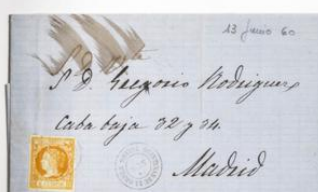 13 Junio 60
S. D. Gregorio Rodriguez
Caba baja 32 y 34.
Madrid